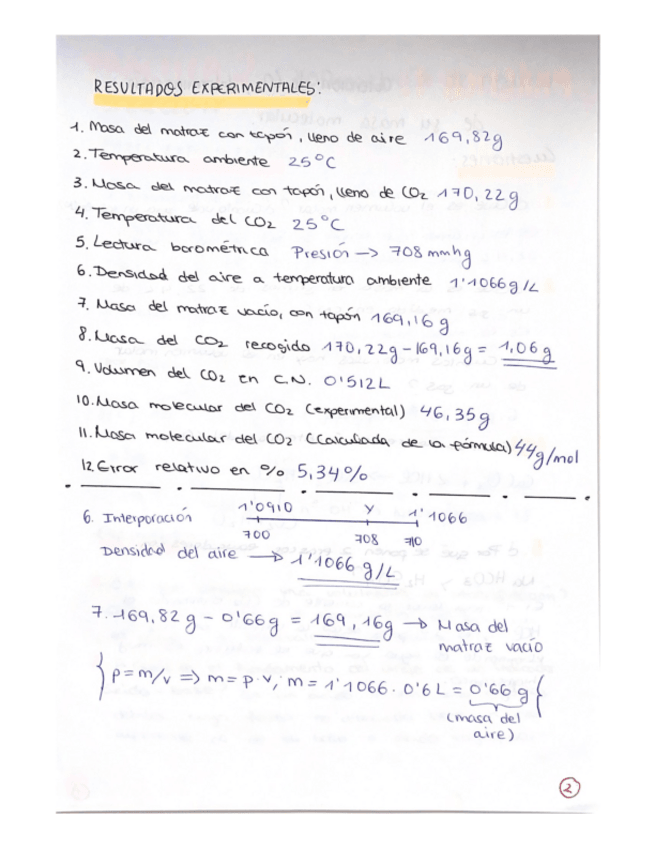 RESULTADOS EXPERIMENTALES:
1. Masa del matraz con tapón, lleno de aire 169,82g
2. Temperatura ambiente 25°C
3. Masa del matraz con tapón, lleno de CO2 170,22g
4. Temperatura del CO2 25°C
5. Lectura barométrica Presión → 708 mmhg
6. Densidad del aire a temperatura ambiente 1'1066g/L
7. Masa del matraz vacío, con tapón 169,16g
8. Masa del CO2 recogido 170,22g-169,16g= 1,06g
9. Volumen del CO2 en C.N. 0'512L
10. Masa molecular del CO2 (experimental) 46,35g
11. Masa molecular del CO2 (Calculada de la fórmula) 44g/mol
12. Error relativo en % 5,34%
1'0910 y 1'1066
6. Interporación
700 708 710
Densidad del aire → 1'1066 g/L
7. 169,82g - 0'66g = 169,16g → Masa del
matraz vacío
{ρ=m/v => m=ρ.v; m= 1'1066. 0'6L = 0'66g{
(masa del
aire)
2